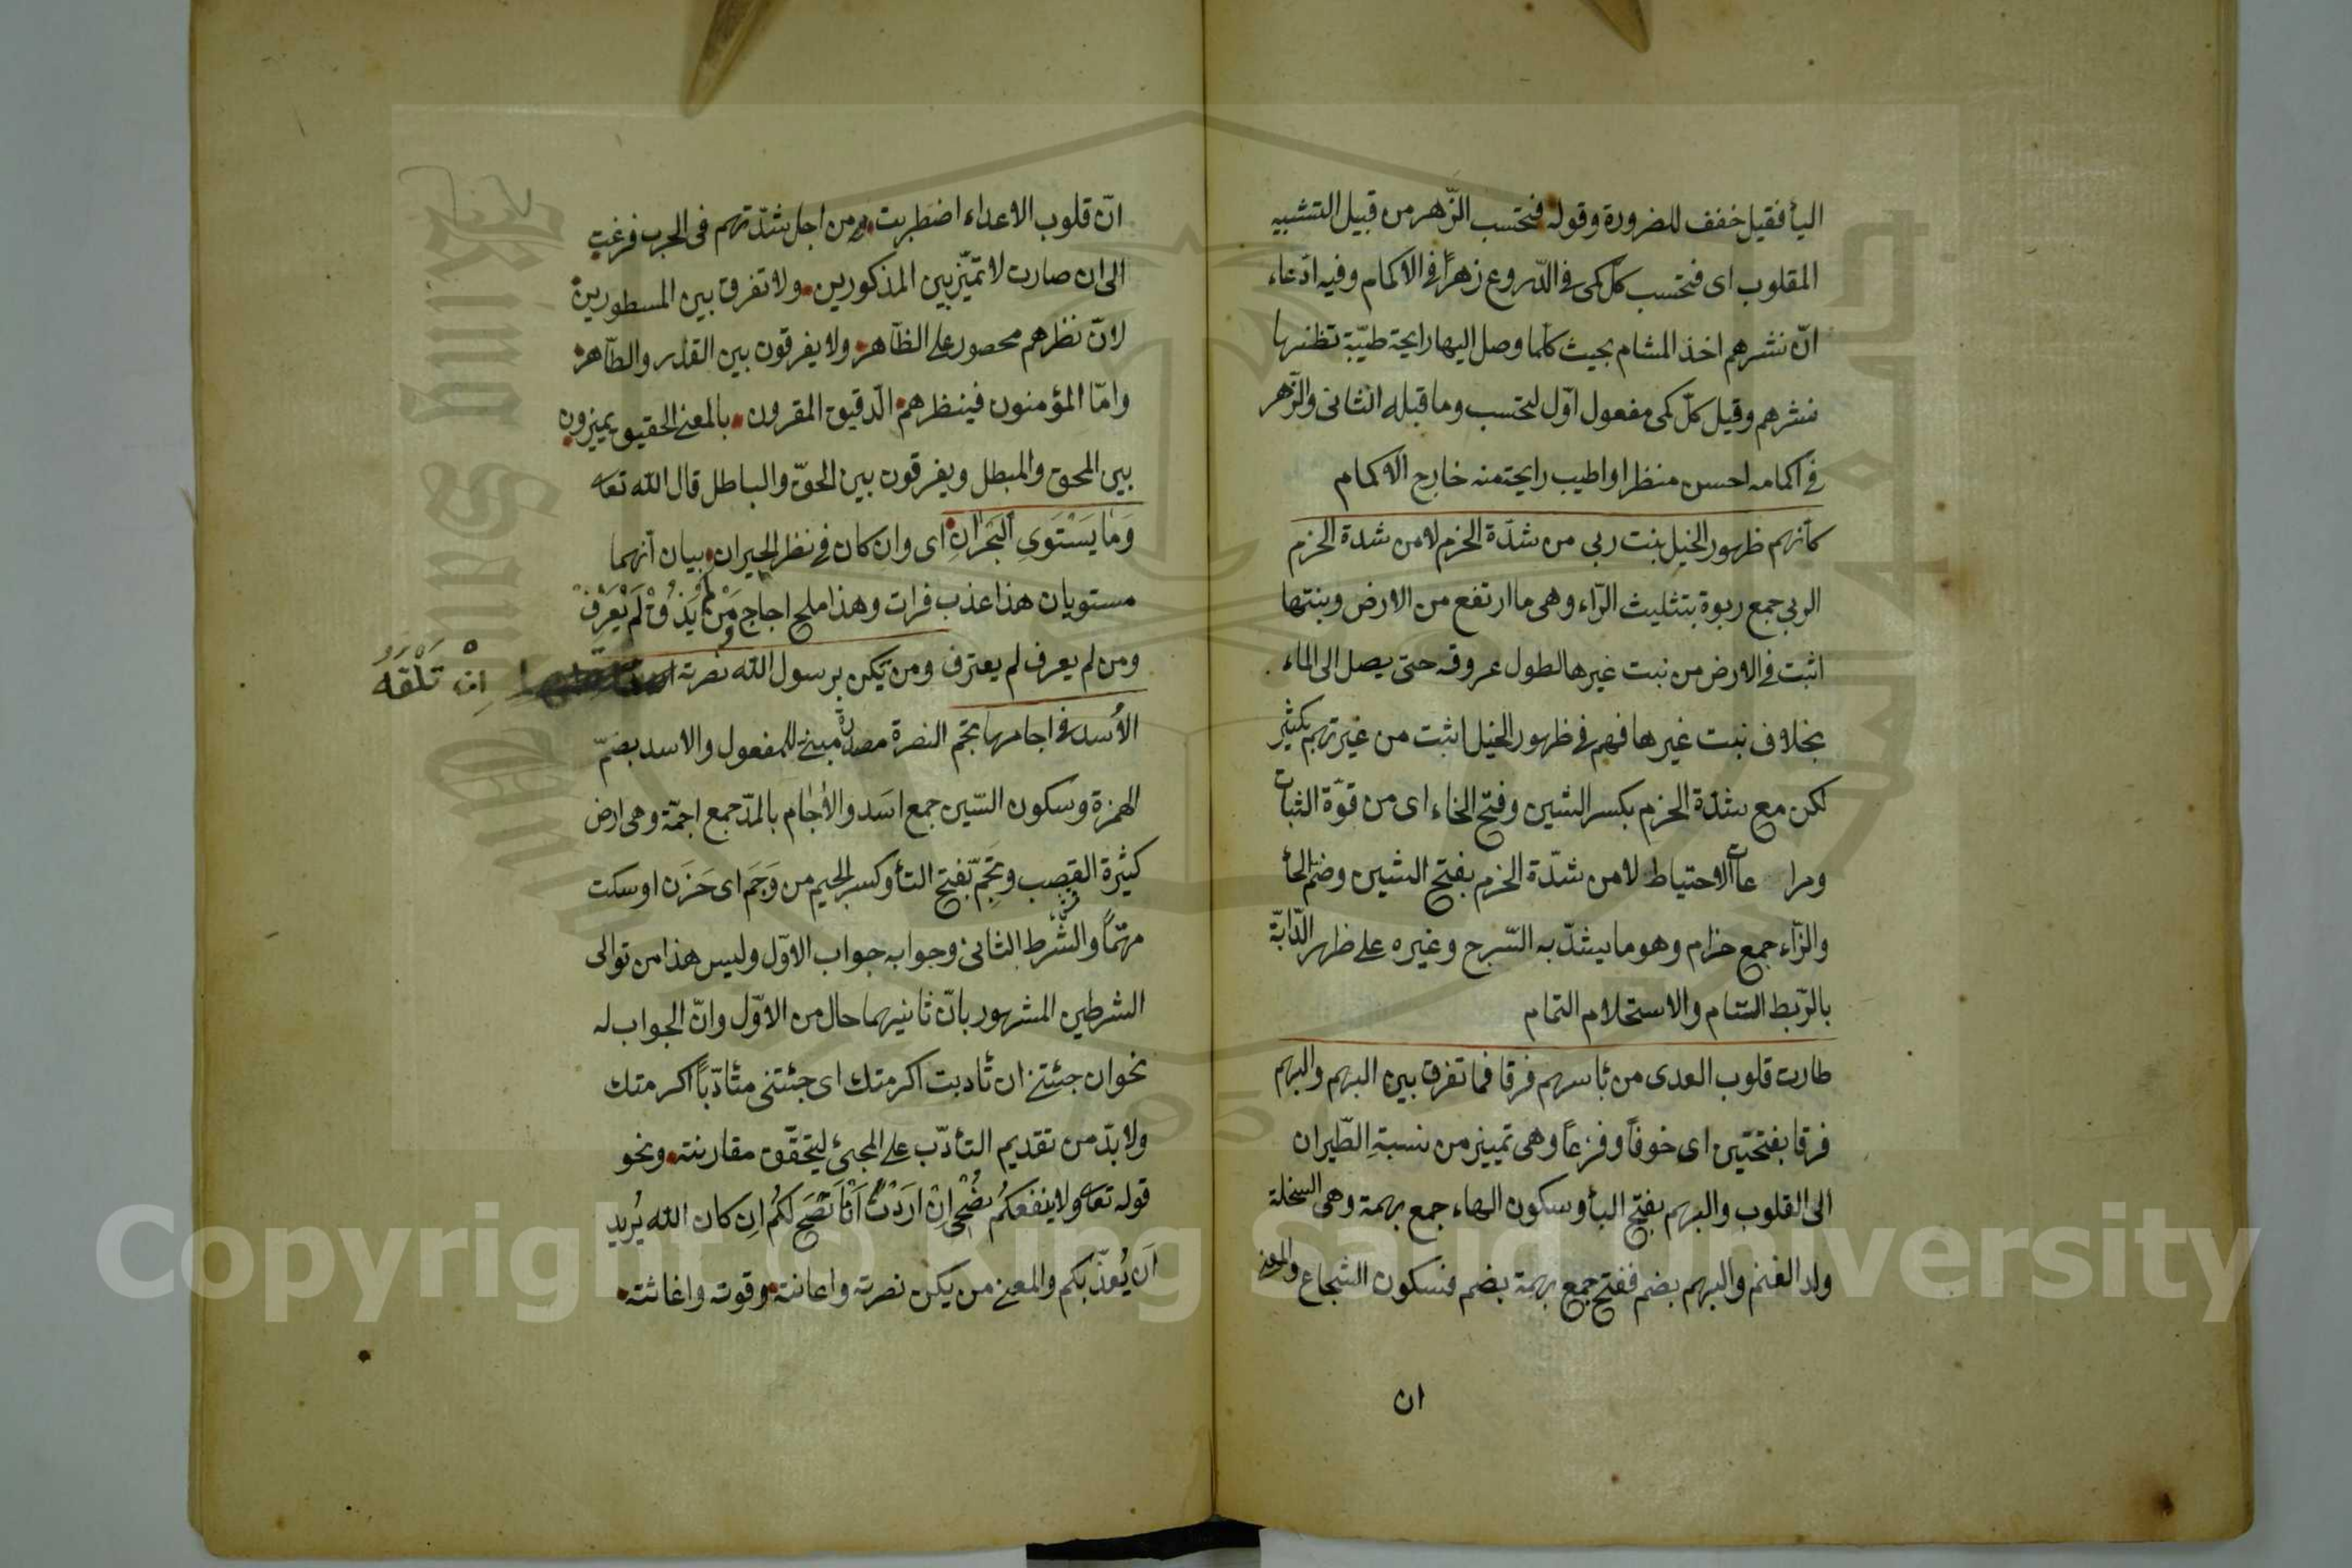 اليأ فقيل خفف للضرورة وقوله فتحسب الزّهر من قبيل التشبيه
المقلوب اى فتحسب كلّ كمى فى الدّروع زهرًا فى الاكمام وفيه ادّعاء
انّ نشرهم اخذ المشام بحيث كلّما وصل اليها رايحة طيّبة تظنها
نشرهم وقيل كلّ كمى مفعول اوّل لتحسب وما قبله الثانى والزّهر
فى اكمامه احسن منظرا واطيب رايحة منه خارج الاكمام
كأنهم ظهور الخيل نبت ربى من شدّة الحزم لا من شدة الحزم
الربى جمع ربوة بتثليث الرّاء وهى ما ارتفع من الارض ونبتها
اثبت فى الارض من نبت غيرها لطول عروقه حتى يصل الى الماء
بخلاف نبت غيرها فهم فى ظهور الخيل اثبت من غيرهم بكثير
لكن مع شدّة الحزم بكسر الشين وفتح الحاء اى من قوّة الثبات
ومراعات الاحتياط لا من شدّة الحزم بفتح الشين وضمّ الحأ
والزّاء جمع حزام وهو ما يشدّ به السّرج وغيره على ظهر الدّابّة
بالرّبط التام والاستحلام التمام
طارت قلوب العدى من بأسهم فرقا فما تفرق بين البهم والبهم
فرقا بفتحتين اى خوفًا وفزعًا وهى تمييز من نسبةِ الطّيران
الى القلوب والبهم بفتح البأ وسكون الهاء جمع بهمة وهى السخلة
ولد الغنم والبهم بضم ففتح جمع بهمة بضم فسكون الشجاع والمعنى
ان
انّ قلوب الاعداء اضطربت ومن اجل شدّتهم فى الحرب فرغبت
الى ان صارت لا تميّز بين المذكورين ولا تفرق بين المسطورين
لانّ نظرهم محصور على الظآهر ولا يفرقون بين القذر والطآهر
وامّا المؤمنون فبنظرهم الدقيق المقرون بالمعنى الحقيق يميزون
بين المحق والمبطل ويفرقون بين الحقّ والباطل قال الله تعا
وَمَا يَسْتَوِى الْبَحْرَانِ اى وان كان فى نظر الحيران بيان أنهما
مستويان هذا عذب فرات وهذا ملح اجاج وَمَنْ لم يَذُقْ لَمْ يَعْرِفْ
ومن لم يعرف لم يعترف ومن تكن برسول الله نصرته اِنْ تَلْقَهُ
الأُسد فى اجامها تجم النصرة مصدر مبنى للمفعول والاسد بضمّ
الهمزة وسكون السّين جمع اسَد والأجام بالمدّ جمع اجمّة وهى ارض
كثيرة القصب وتَجِم بفتح التأ وكسر الجيم من وَجَم اى حَزَن او سكت
مهتمًّا والشّرط الثانى وجوابه جواب الاوّل وليس هذا من توالى
الشرطين المشهور بانّ ثانيهما حال من الاوّل وانّ الجواب له
نحو ان جئتنى ان تأدبت اكرمتك اى جئتنى متأدّبًا اكرمتك
ولا بدّ من تقديم التأدّب على المجئ ليتحقّق مقارنته ونحو
قوله تعا ولا ينفعكُم نُصْحِى اِنْ اَرَدْتُ اَنْ اَنْصَحَ لَكُم اِن كان الله يُريد
اَن يُعذّبكم والمعنى من يكن نصرته واعانته وقوته واغاثته
Copyright © King Saud University